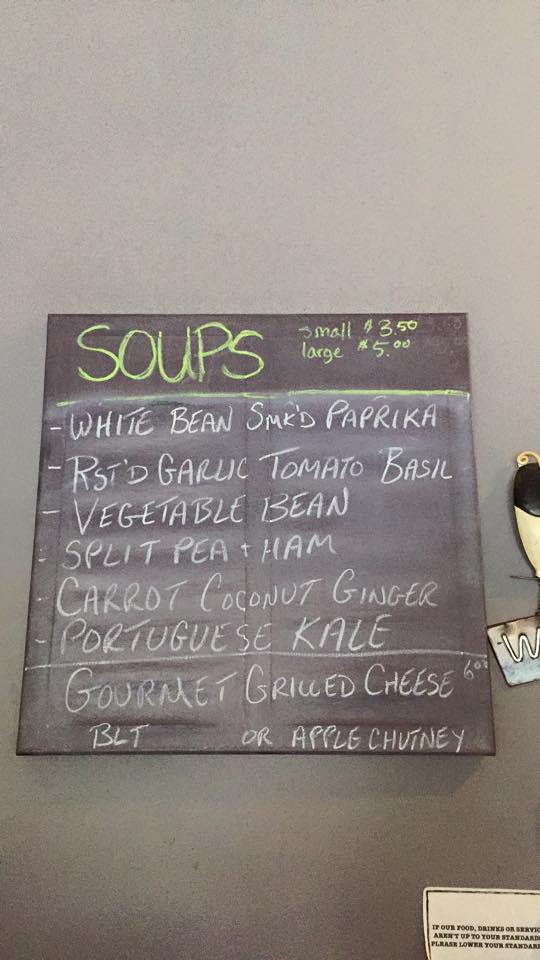 SOUPS
small $3.50
large $5.00
- WHITE BEAN SMK'D PAPRIKA
- RST'D GARLIC TOMATO BASIL
- VEGETABLE BEAN
- SPLIT PEA + HAM
- CARROT COCONUT GINGER
- PORTUGUESE KALE
GOURMET GRILLED CHEESE 6.00
BLT OR APPLE CHUTNEY
W
IF OUR FOOD, DRINKS OR SERVIC
AREN'T UP TO YOUR STANDARD
PLEASE LOWER YOUR STANDAR